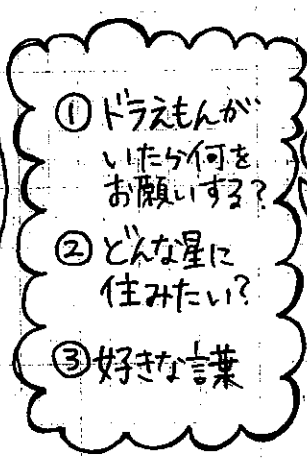 ①ドラえもんが
いたら何を
お願いする?
②どんな星に
住みたい?
③好きな言葉